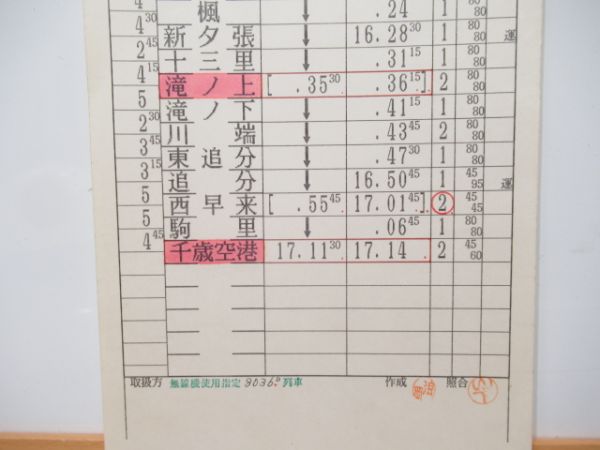 楓 ↓ .24 1 80 80
4 30
新夕張 ↓ 16.28 30 1 80 80 運
2 45
十三里 ↓ .31 15 1 80 80
4 15
滝ノ上 [ .35 30 .36 15 ] 2 80 80
5
滝ノ下 ↓ .41 15 1 80 80
2 30
川端 ↓ .43 45 2 80 80
3 45
東追分 ↓ .47 30 1 80 80
3 15
追分 ↓ 16.50 45 1 45 95 運
5
西早来 [ .55 45 17.01 45 ] 2 45 45
5
駒里 ↓ .06 45 1 80 80
4 45
千歳空港 17.11 30 17.14 2 45 60
取扱方 無線機使用指定 8036D列車 作成 照合